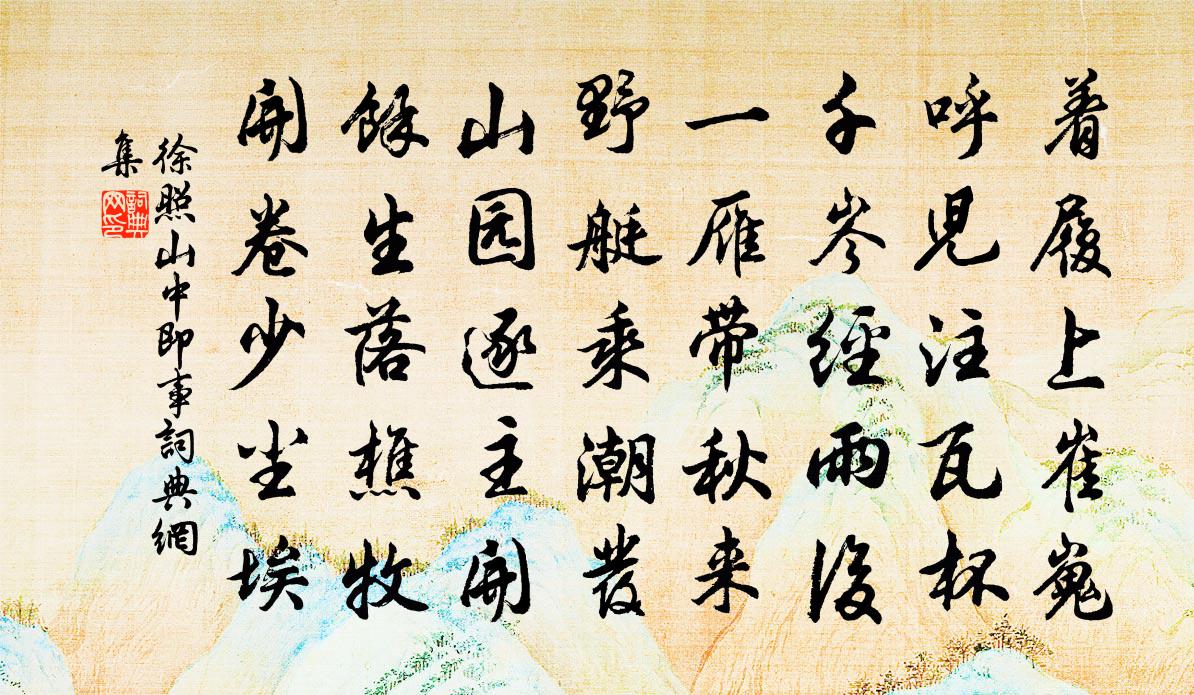 着履上崔嵬
呼児注瓦杯
千岑經雨後
一雁带秋来
野艇乘潮發
山园逐主開
餘生落樵牧
開卷少尘埃
徐照山中即事詞典網
集
詞典
网印